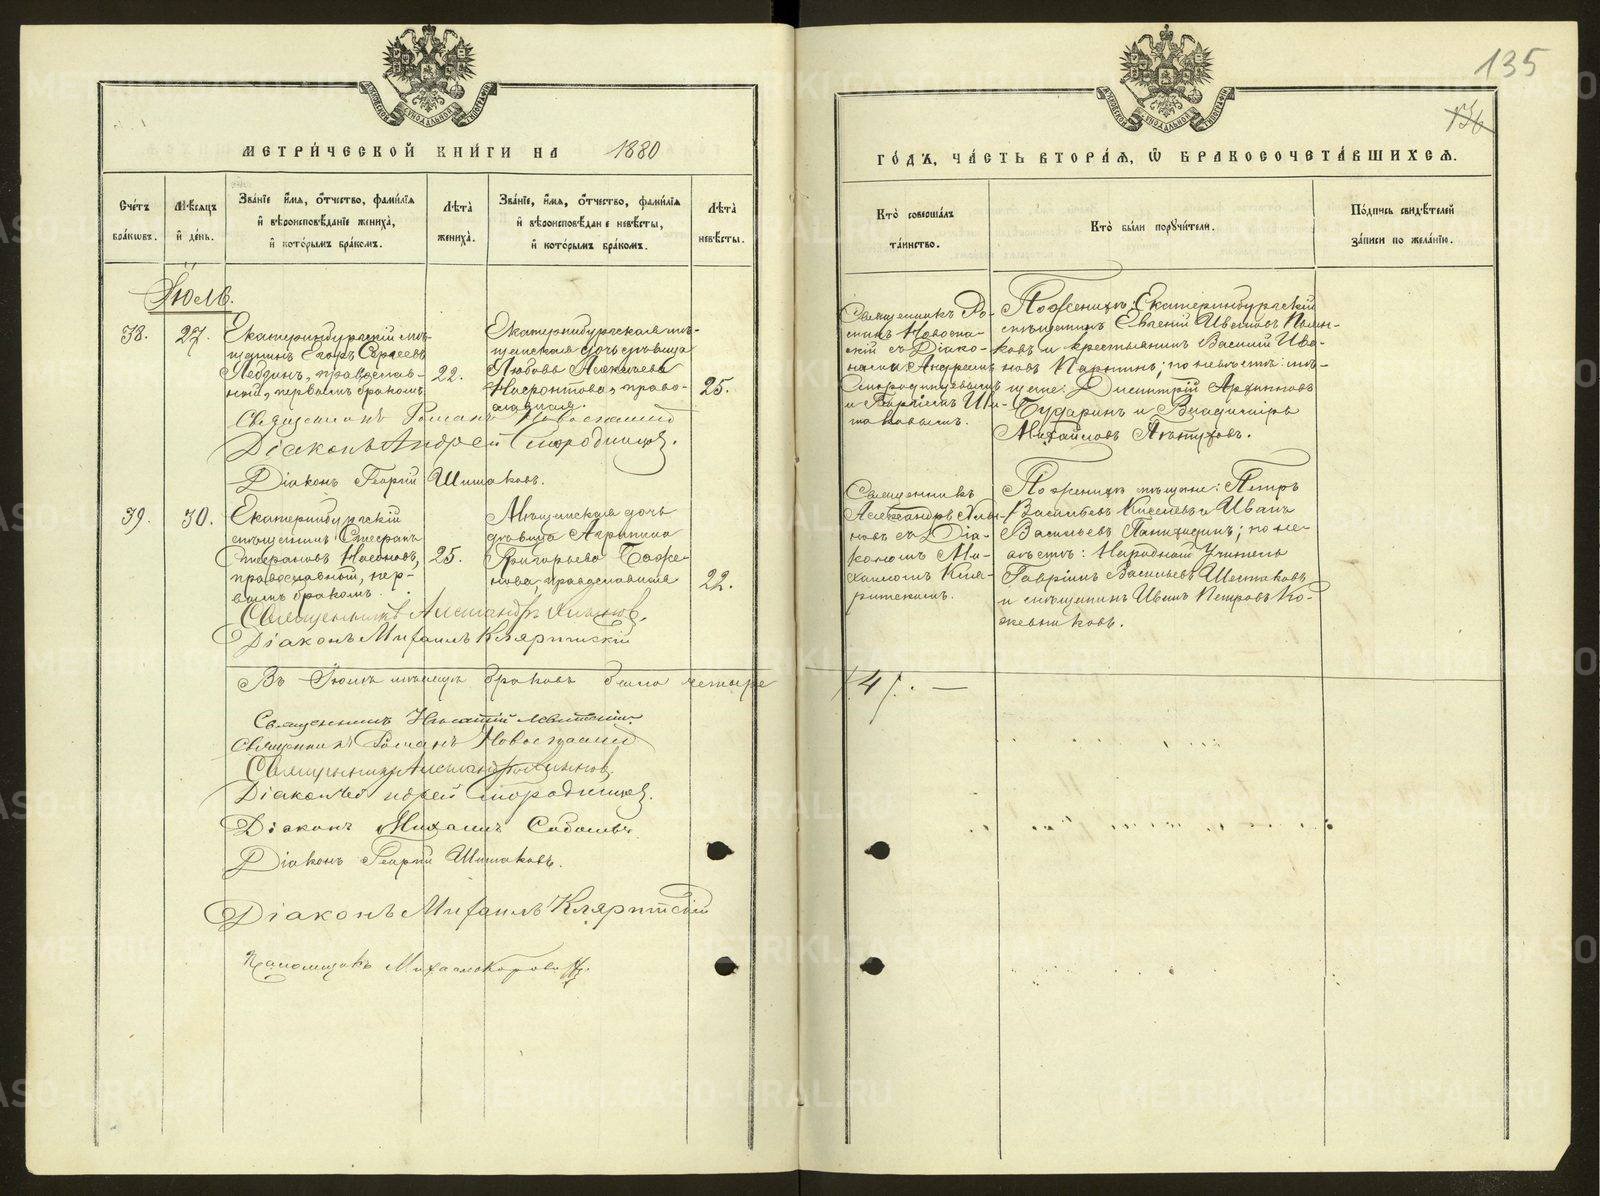 МОСКОВСКОЙ СѴНОДАЛЬНОЙ ТИПОГРАФІИ
МЕТРИ́ЧЕСКОЙ КНИ́ГИ НА 1880
Сче́тъ бра́кѡвъ.
Мѣ́сяцъ и҆ де́нь.
Зва́нїе и҆́мя, ѻ҆́тчество, фами́лїя
и҆ вѣроисповѣ́данїе жениха̀,
и҆ кото́рымъ бра́комъ.
Лѣ́та жениха̀.
Зва́нїе, и҆́мя, ѻ҆́тчество, фами́лїя
и҆ вѣроисповѣ́дан е невѣ́сты,
и҆ кото́рымъ бра́комъ.
Лѣ́та невѣ́сты.
Іюль.
38. 27.
Екатеринбургскій мѣ-
щанинъ Егоръ Сергеевъ
православ-
ный, первымъ бракомъ
22.
Екатеринбургская мѣ-
щанская дочь дѣвица
Любовь Алексеева
право-
славная.
25.
Священникъ Романъ
Діаконъ Андрей Смородинцев.
Діаконъ Георгій Шишаковъ.
39. 30.
Екатеринбургскій
мѣщанинъ Стефанъ
Стефановъ Насоновъ,
православный, пер-
вымъ бракомъ.
25.
Мѣщанская дочь
дѣвица Агрипина
Григорьева Боже-
нова, православная
22.
Священникъ Александръ
Діаконъ Михаилъ
Въ Іюлѣ мѣсяцѣ браковъ было четыре
Священникъ
Священникъ Романъ
Священникъ Александръ
Діаконъ Андрей Смородинцев.
Діаконъ Михаилъ Соболевъ
Діаконъ Георгій Шишаковъ.
Діаконъ Михаилъ
Псаломщикъ Михаилъ
135
136
МОСКОВСКОЙ СѴНОДАЛЬНОЙ ТИПОГРАФІИ
ГО́ДЪ, ЧА́СТЬ ВТОРА́Я, Ѽ БРАКОСОЧЕТА́ВШИХСЯ.
Кто̀ соверша́лъ
та́инство.
Кто̀ бы́ли порꙋчи́тели.
По́дпись свидѣ́телей
за́писи по жела́нїю.
Священникъ Ро-
манъ
скій съ Діако-
нами Андреемъ
Смородинцевымъ
и Георгіемъ Ши-
шаковымъ.
По женихѣ: Екатеринбургскій
мѣщанинъ Евгеній Ивановъ Пьян-
ковъ и крестьянинъ Василій Ива-
новъ; по невѣстѣ: мѣ-
щане: Димитрій
Бударинъ и Владиміръ
Михайловъ
Священникъ
Александръ
новъ съ Діа-
кономъ Ми-
хаиломъ
По женихѣ мѣщане: Петръ
Васильевъ Киселевъ и Иванъ
Васильевъ; по не-
вѣстѣ: Народный Учитель
Гавріилъ Васильевъ Шестаковъ
и мѣщанинъ Иванъ Петровъ Ко-
жевниковъ.
/4/. —
METRIKI.GASO-URAL.RU